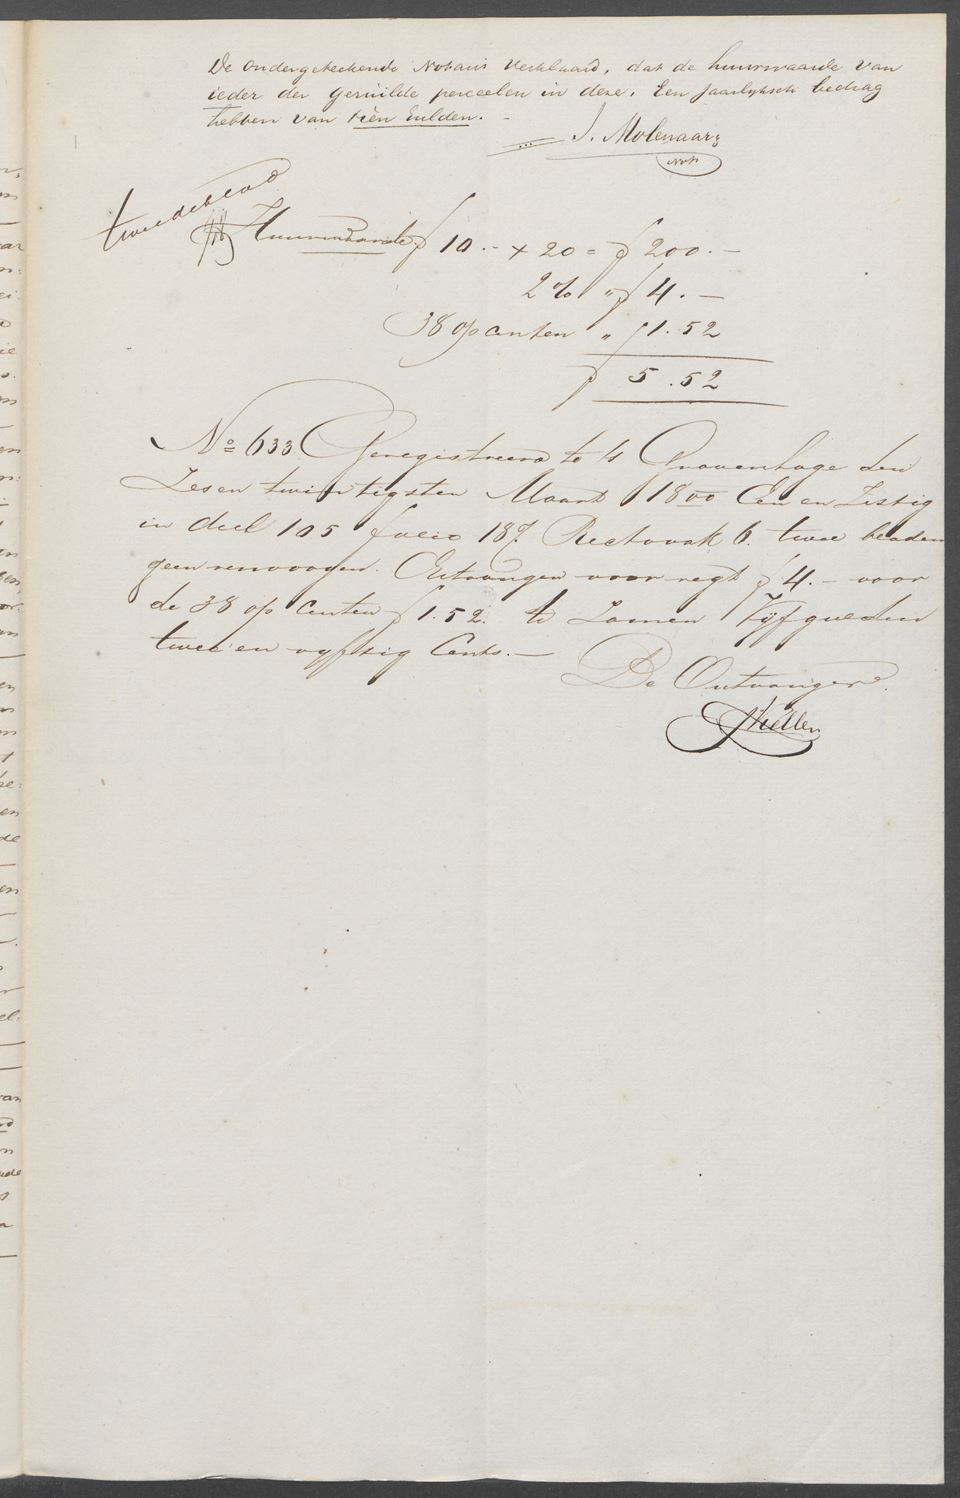 De ondergeteekende Notaris verklaard, dat de huurwaarde van
ieder der geruilde perceelen in deze, Een jaarlyksch bedrag
hebben van tien Gulden. -
J. Molenaar
Nots
tweede blad
Huurwaarde ƒ 10.- x 20 = ƒ 200.-
2% " ƒ 4.-
38 op centen " ƒ 1.52
ƒ 5.52
No 633 Geregistreerd te 's Gravenhage den
Zes en twintigsten Maart 1800 Een en Zestig
in deel 105 folio 187 Recto vak 6. twee bladen
geen renvooyen. Ontvangen voor regt ƒ 4.- voor
de 38 op Centen ƒ 1.52. te Zamen Vyf gulden
twee en vyftig Cents.-
De Ontvanger.